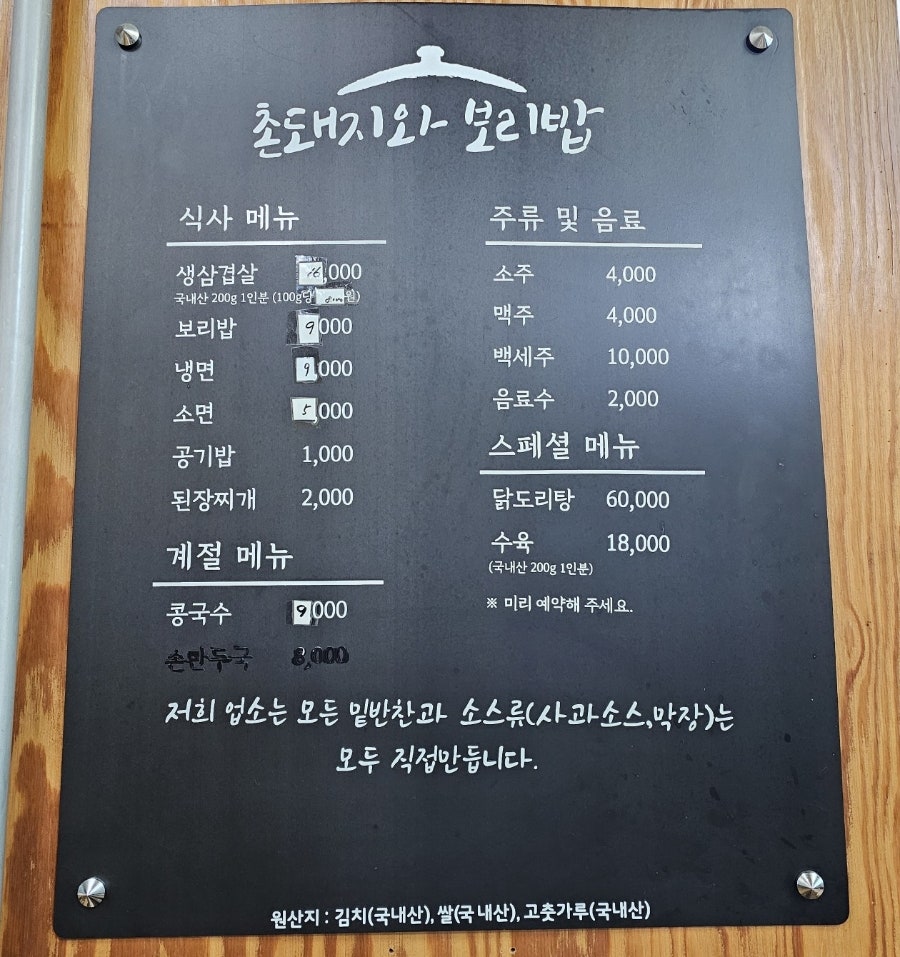 촌돼지와 보리밥
식사 메뉴
생삼겹살 16,000
국내산 200g 1인분 (100g당 원)
보리밥 9000
냉면 9,000
소면 5,000
공기밥 1,000
된장찌개 2,000
계절 메뉴
콩국수 9,000
손만두국 8,000
주류 및 음료
소주 4,000
맥주 4,000
백세주 10,000
음료수 2,000
스페셜 메뉴
닭도리탕 60,000
수육 18,000
(국내산 200g 1인분)
※ 미리 예약해 주세요.
저희 업소는 모든 밑반찬과 소스류(사과소스,막장)는
모두 직접만듭니다.
원산지 : 김치(국내산), 쌀(국내산), 고춧가루(국내산)